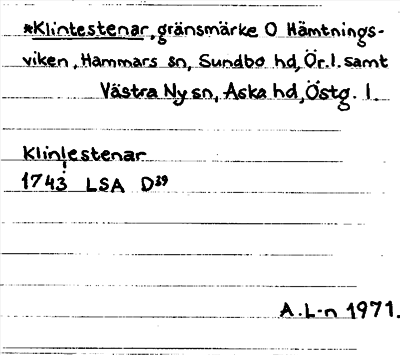 *Klintestenar, gränsmärke O Hämtnings-
viken, Hammars sn, Sundbo hd, Ör. l. samt
Västra Ny sn, Aska hd, Östg. l.
Klinlestenar
1743 LSA D39
A. L-n 1971.